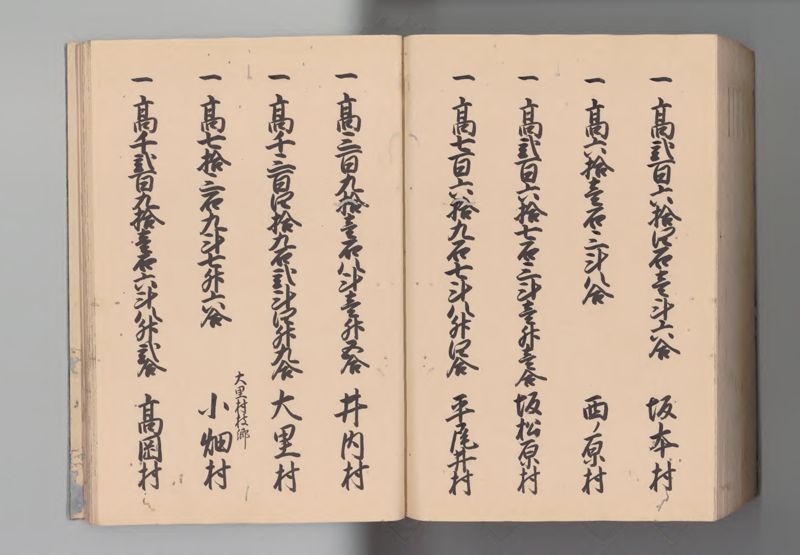 一 高弐百六拾四石壱斗六合 坂本村
一 高六拾壱石三斗八合 西ノ原村
一 高弐百六拾七石三斗壱升壱合 坂松原村
一 高七百六拾九石七斗八升四合 平尾井村
一 高三百九拾壱石八斗壱升五合 井内村
一 高千三百四拾九石弐斗四升九合 大里村
大里村枝郷
一 高七拾三石九斗七升六合 小畑村
一 高千弐百九拾壱石六斗八升弐合 高岡村